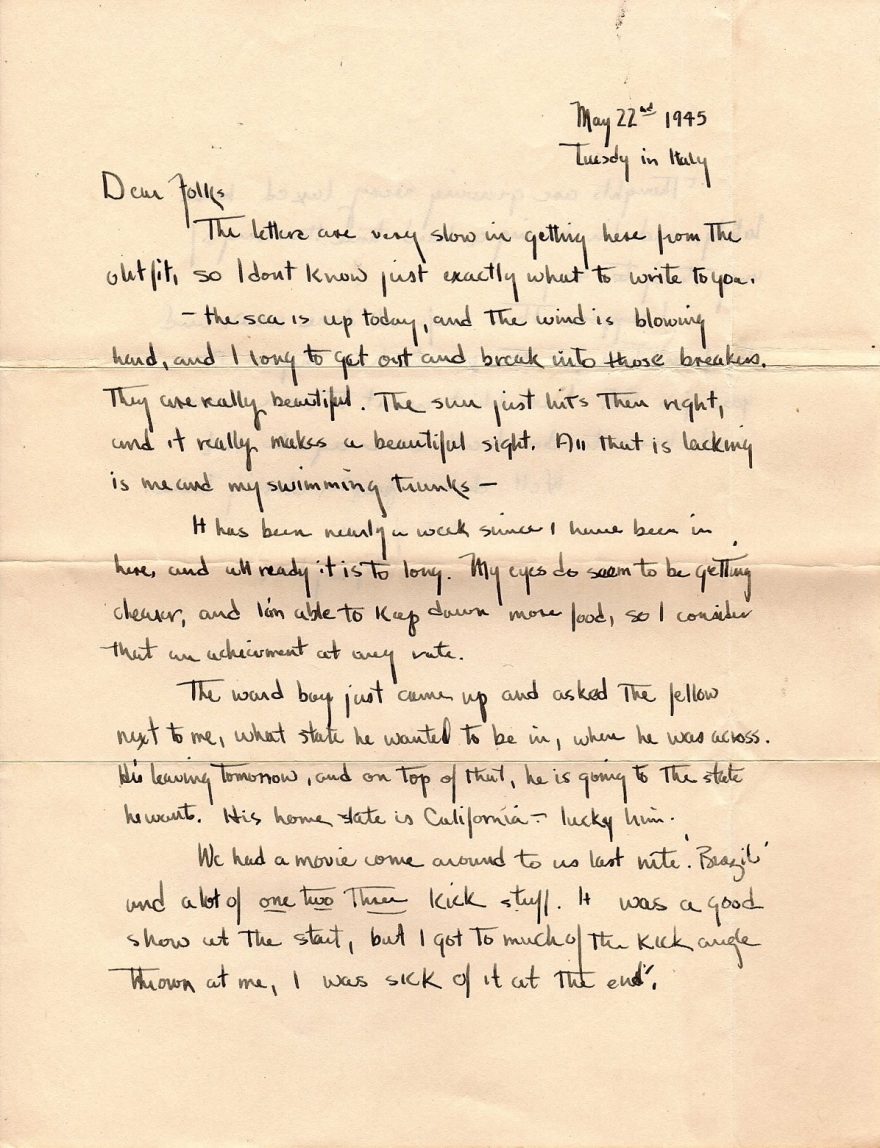 May 22nd 1945
Tuesdy in Italy
Dear Folks
The letters are very slow in getting here from the
outfit, so I dont know just exactly what to write to you.
- the sea is up today, and the wind is blowing
hard, and I long to get out and break into those breakers.
They are really beautiful. The sun just hits then right,
and it really makes a beautiful sight. All that is lacking
is me and my swimming trunks -
It has been nearly a week since I have been in
here, and all ready it is to long. My eyes do seem to be getting
clearer, and I'm able to keep down more food, so I consider
that an acheivment at any rate.
The ward boy just came up and asked the fellow
next to me, what state he wanted to be in, when he was across.
His leaving tomorrow, and on top of that, he is going to the state
he wants. His home state is California - lucky him.
We had a movie come around to us last nite. 'Brazil'
and a lot of one two three kick stuff. It was a good
show at the start, but I got to much of the kick angle
thrown at me, I was sick of it at the end.